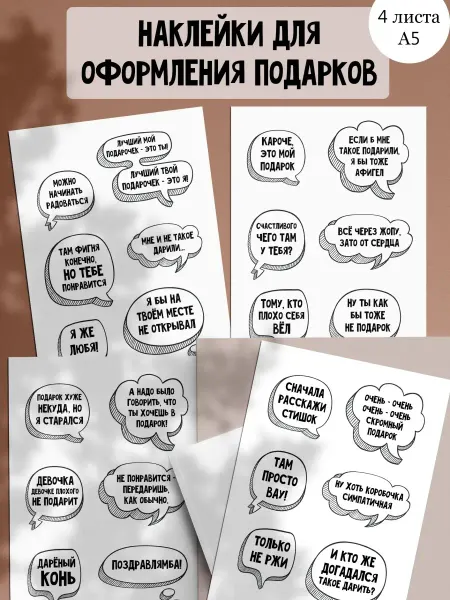 НАКЛЕЙКИ ДЛЯ
ОФОРМЛЕНИЯ ПОДАРКОВ
4 листа
А5
ЛУЧШИЙ МОЙ
ПОДАРОЧЕК - ЭТО ТЫ!
ЛУЧШИЙ ТВОЙ
ПОДАРОЧЕК - ЭТО Я!
МОЖНО
НАЧИНАТЬ
РАДОВАТЬСЯ
ТАМ ФИГНЯ
КОНЕЧНО,
НО ТЕБЕ
ПОНРАВИТСЯ
МНЕ И НЕ ТАКОЕ
ДАРИЛИ...
Я БЫ НА
ТВОЁМ МЕСТЕ
НЕ ОТКРЫВАЛ
Я ЖЕ
ЛЮБЯ!
КАРОЧЕ,
ЭТО МОЙ
ПОДАРОК
ЕСЛИ Б МНЕ
ТАКОЕ ПОДАРИЛИ,
Я БЫ ТОЖЕ
АФИГЕЛ
СЧАСТЛИВОГО
ЧЕГО ТАМ
У ТЕБЯ?
ВСЁ ЧЕРЕЗ ЖОПУ,
ЗАТО ОТ СЕРДЦА
ТОМУ, КТО
ПЛОХО СЕБЯ
ВЁЛ
НУ ТЫ КАК
БЫ ТОЖЕ
НЕ ПОДАРОК
ПОДАРОК ХУЖЕ
НЕКУДА, НО
Я СТАРАЛСЯ
А НАДО БЫЛО
ГОВОРИТЬ, ЧТО
ТЫ ХОЧЕШЬ В
ПОДАРОК!
ДЕВОЧКА
ДЕВОЧКЕ ПЛОХОГО
НЕ ПОДАРИТ
НЕ ПОНРАВИТСЯ -
ПЕРЕДАРИШЬ,
КАК ОБЫЧНО.
ДАРЁНЫЙ
КОНЬ
ПОЗДРАВЛЯМБА!
СНАЧАЛА
РАССКАЖИ
СТИШОК
ОЧЕНЬ - ОЧЕНЬ
ОЧЕНЬ - ОЧЕНЬ
СКРОМНЫЙ
ПОДАРОК
ТАМ
ПРОСТО
ВАУ!
НУ ХОТЬ КОРОБОЧКА
СИМПАТИЧНАЯ
ТОЛЬКО
НЕ РЖИ
И КТО ЖЕ
ДОГАДАЛСЯ
ТАКОЕ ДАРИТЬ?